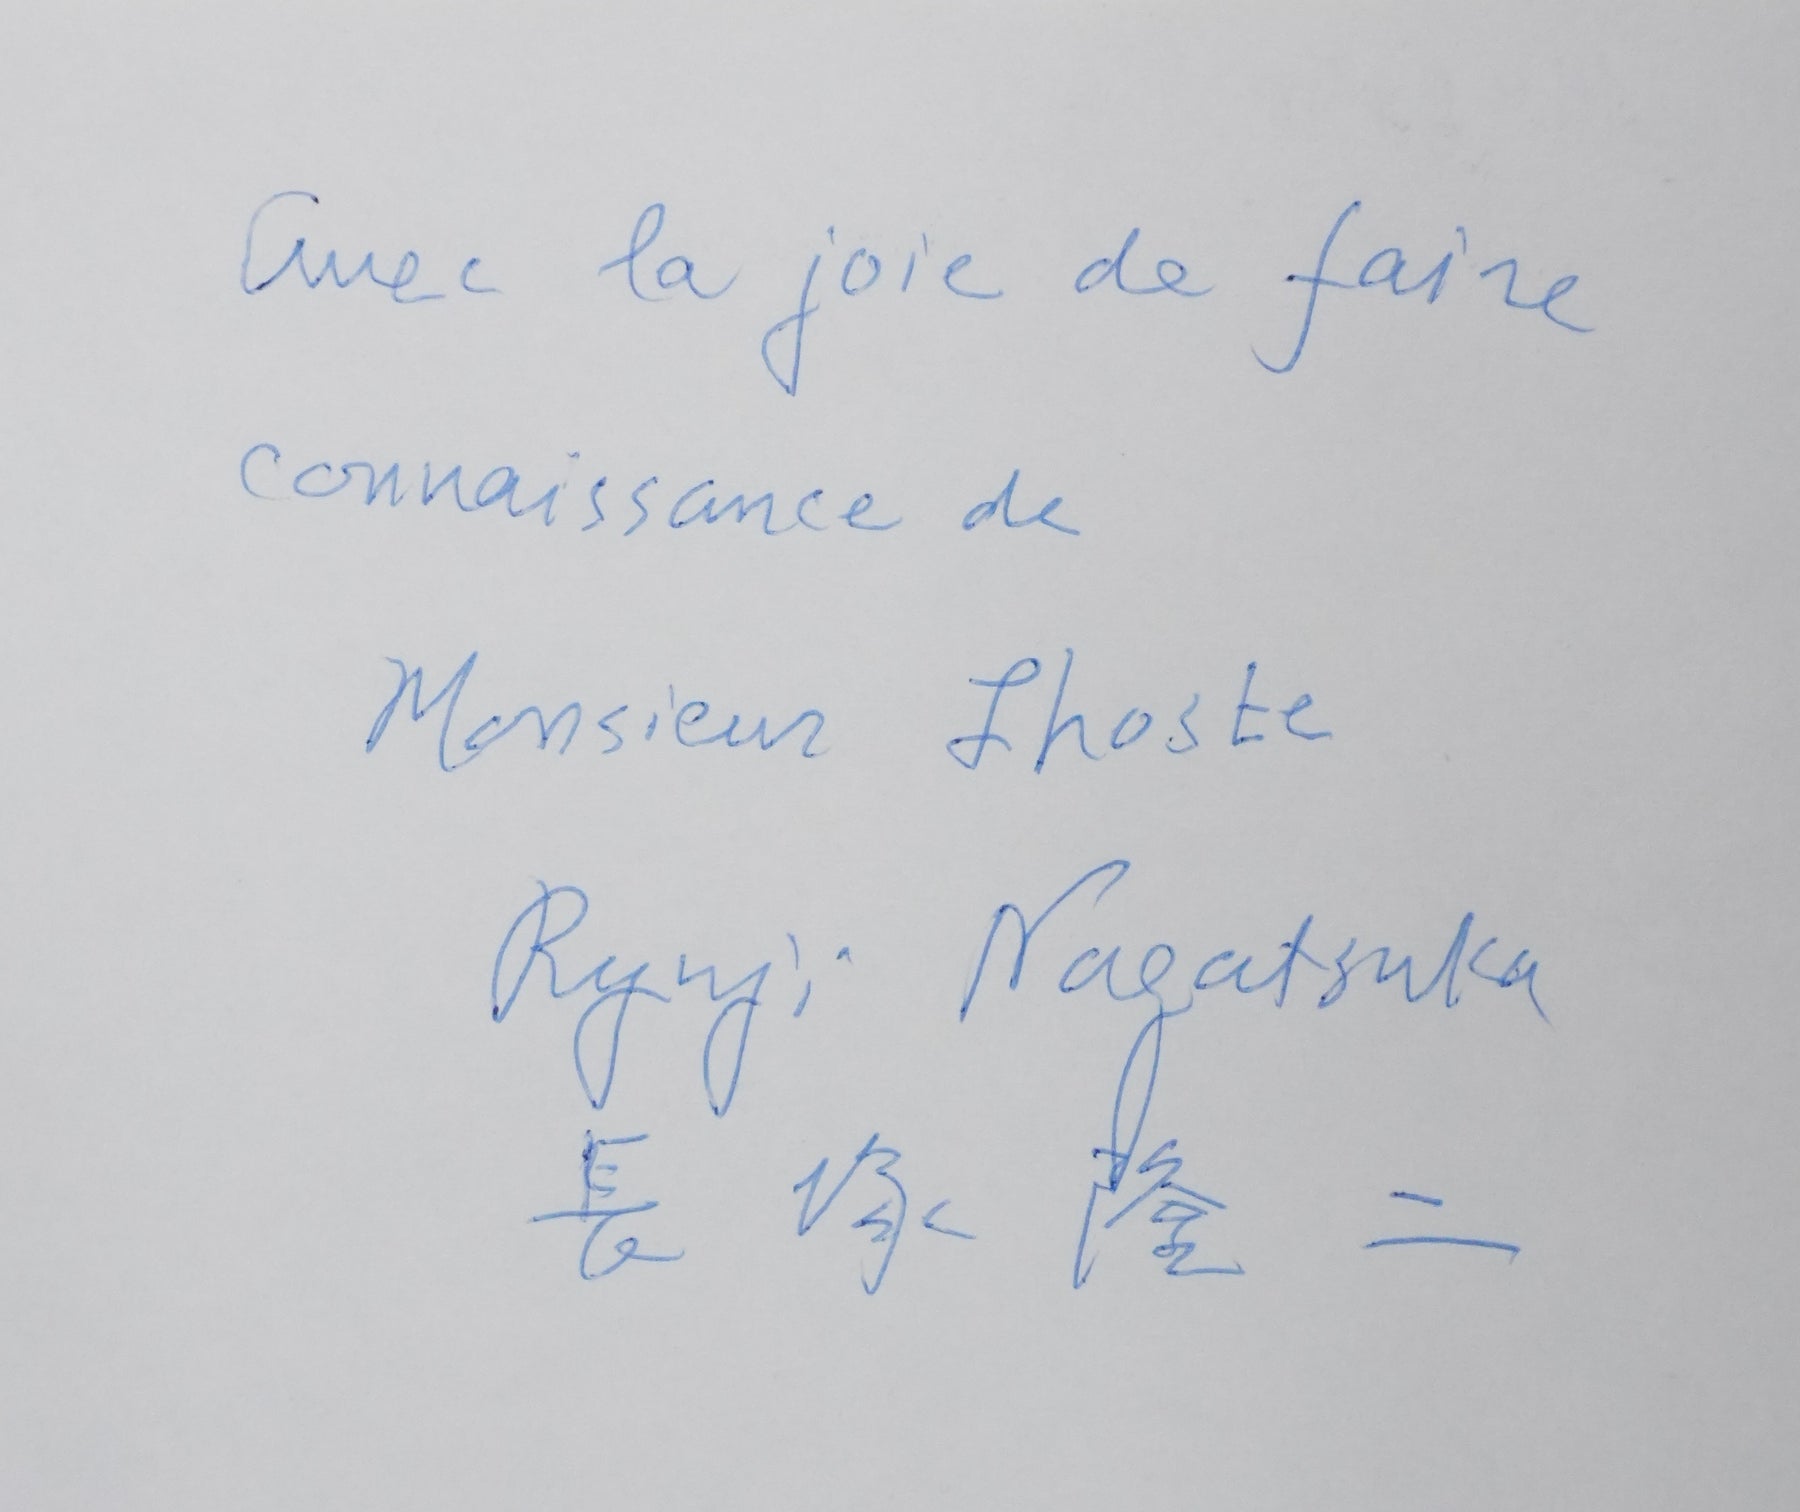 Avec la joie de faire
connaissance de
Monsieur Lhoste
Ryuji Nagatsuka
長塚隆二